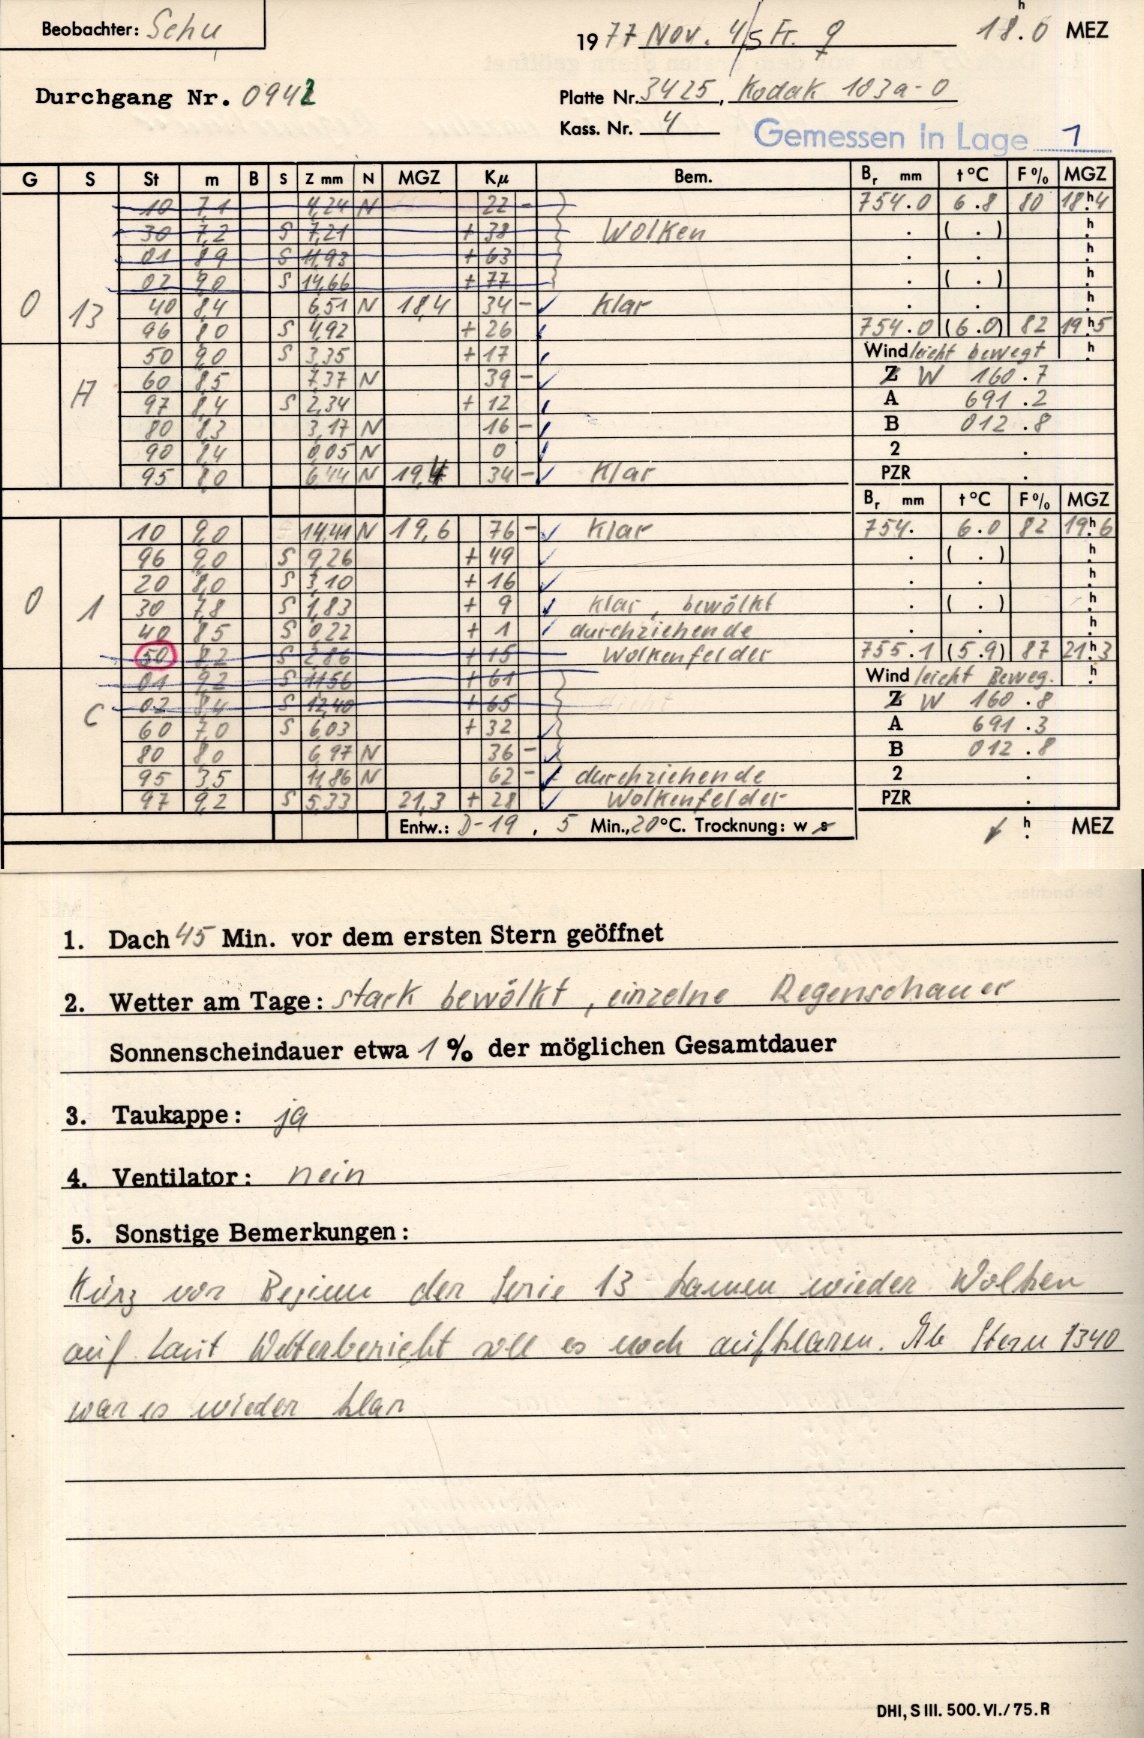 Beobachter: Schu
1977 Nov. 4/5 Fr. ♀ 18.0 h MEZ
Durchgang Nr. 0942
Platte Nr. 3425, Kodak 103a-O
Kass. Nr. 4
Gemessen in Lage 1
G S St m B S Z mm N MGZ Kμ Bem. Br mm t °C F % MGZ
10 7,1 4,24 N 22 - 754.0 6.8 80 18h4
30 7,2 S 7,21 + 38 Wolken . ( . ) h
01 8,9 S 11,93 + 63 . . h
02 9,0 S 14,66 + 77 . ( . ) h
0 13 40 8,4 6,51 N 18,4 34 - Klar . . h
96 8,0 S 4,92 + 26 754.0 (6.0) 82 19h5
50 9,0 S 3,35 + 17 Wind leicht bewegt h
A 60 8,5 7,37 N 39 - Z W 160.7
97 8,4 S 2,34 + 12 A 691.2
80 8,3 3,17 N 16 - B 012.8
90 8,4 0,05 N 0 2 .
95 8,0 6,44 N 19,4 34 - Klar PZR .
Br mm t °C F % MGZ
10 9,0 14,41 N 19,6 76 - Klar 754. 6.0 82 19h6
96 9,0 S 9,26 + 49 . ( . ) h
20 8,0 S 3,10 + 16 . . h
0 1 30 7,8 S 1,83 + 9 Klar, bewölkt . ( . ) h
40 8,5 S 0,22 + 1 durchziehende . . h
50 8,2 S 2,86 + 15 Wolkenfelder 755.1 (5.9) 87 21h3
01 9,2 S 11,56 + 61 Wind leicht Beweg. h
C 02 8,4 S 12,40 + 65 Z W 160.8
60 7,0 S 6,03 + 32 A 691.3
80 8,0 6,97 N 36 - B 012.8
95 3,5 11,86 N 62 - durchziehende 2 .
97 9,2 S 5,33 21,3 + 28 Wolkenfelder PZR .
Entw.: D-19, 5 Min., 20°C. Trocknung: w s h . MEZ
1. Dach 45 Min. vor dem ersten Stern geöffnet
2. Wetter am Tage: stark bewölkt, einzelne Regenschauer
Sonnenscheindauer etwa 1 % der möglichen Gesamtdauer
3. Taukappe: ja
4. Ventilator: nein
5. Sonstige Bemerkungen:
Kurz vor Beginn der Serie 13 kamen wieder Wolken
auf Laut Wetterbericht soll es noch aufklaren. Ab Stern 1340
war es wieder klar
DHI, S III. 500. VI./75. R